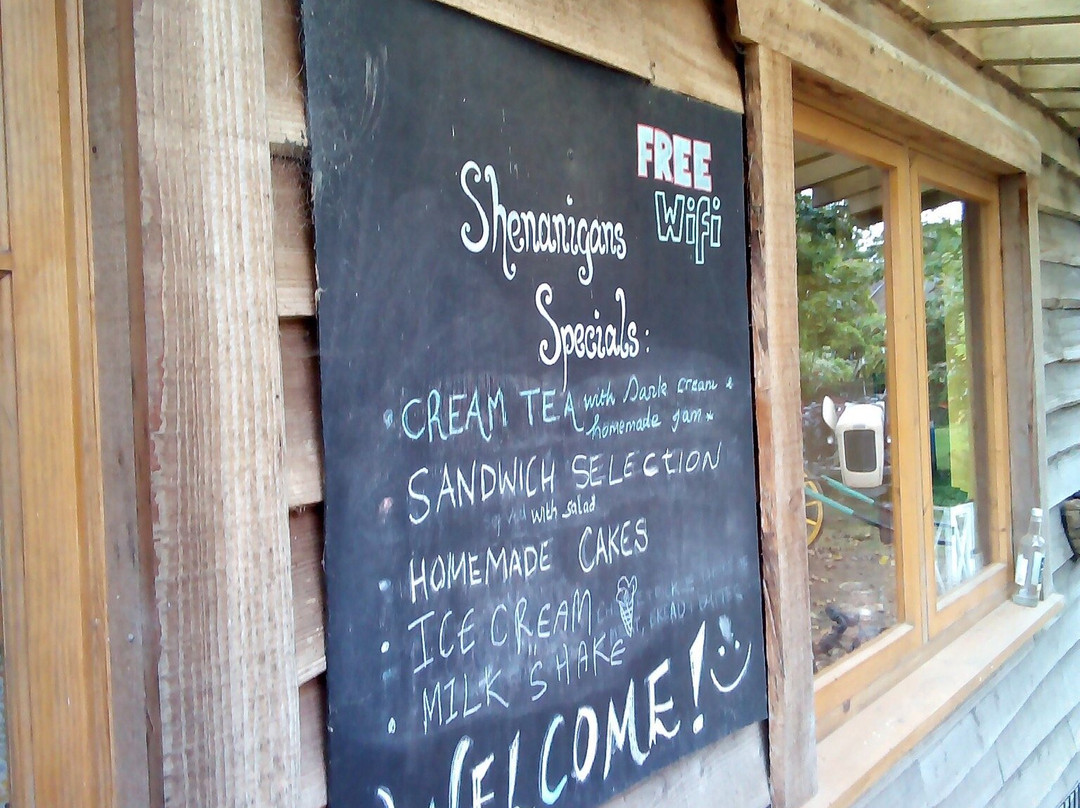 FREE
Wifi
Shenanigans
Specials:
CREAM TEA with Dark cream &
homemade jam
SANDWICH SELECTION
with salad
• HOMEMADE CAKES
• ICE CREAM
• MILK SHAKE
WELCOME!